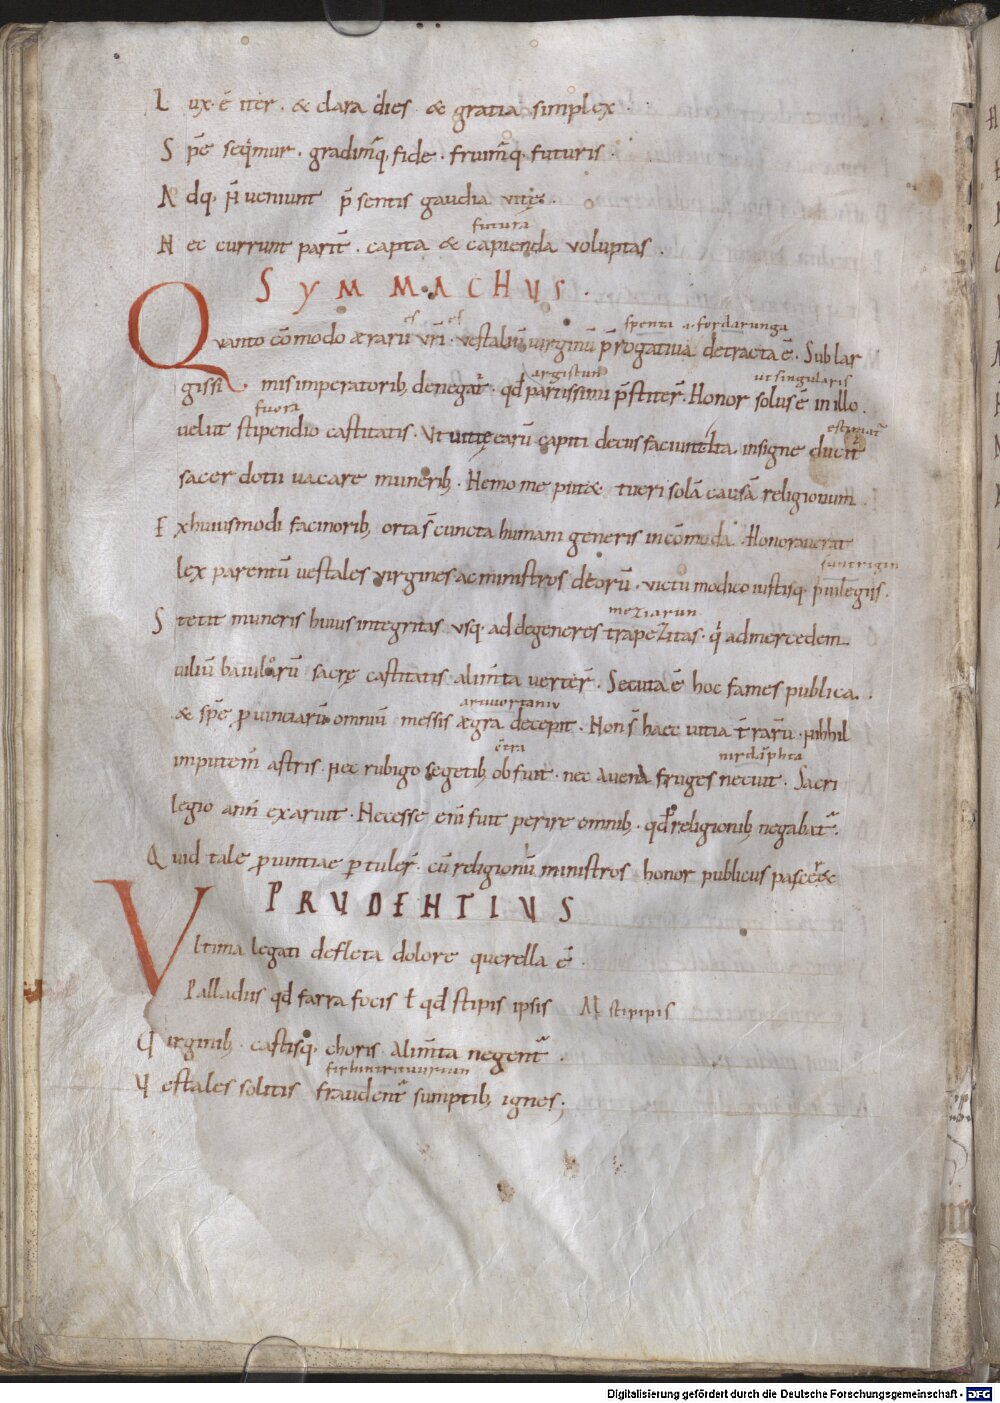 Lux · ē iter · & clara dies · & gratia simplex
Spē seq̇mur · gradimꝰq, fide · fruimꝰq, futuris ·
Adq, ñ ueniunt p̄sentis gaudia uitę ·
futura
Nec currunt parit̄ · capta & capienda voluptas ·
SYMMACHUS ·
spenta a · fordarunga
Quanto cōmodo aerarii vr̄i · vestaliū virginū p̄rogatiua detracta ē · Sub lar
argistun ut singularis
gissimis imperatorib; denegat̄ · qđ parcissimi p̄stiter̄ · Honor solus ē in illo ·
fuora estimat̄
uelut stipendio castitatis · Vt uittę earū capiti decus faciunt · Ita insigne ducit̄
sacerdotii uacare munerib; · Nemo me putæ tueri solā causā religionum
Ex huiusmodi facinorib; orta s̄ cuncta humani generis incōmoda · Honorauerat
lex parentū uestales virgines ac ministros deorū · victu modico iustisq, priuilegiis ·
meziarun
Stetit muneris huius integritas vsq, ad degeneres trapezitas · q̇ ad mercedem
uiliū baiulorū sacrę castitatis alim̄ta uerter̄ · Secuta ē hoc fames publica ·
& spē prouinciarū omniū messis aegra decepit · Non s̄ haec uitia t̄rarū · Nihil
imputem̄ astris · Nec rubigo segetib; obfuit · nec auena fruges necuit · Sacri
legio ann̄ exaruit · Necesse eni fuit perire omnib; · qđ religionib; negabat̄ ·
Quid tale prouintiae pertuler̄ · cū religionū ministros honor publicus pasceret
PRUDENTIUS
Vltima legati defleta dolore querella ē ·
Palladiis qđ farra focis ł qđ stipis ipsis Al stipipis
Virginib; · castisq, choris alim̄ta negent̄ ·
Vestales solitis fraudent̄ sumptib; ignes ;
Digitalisierung gefördert durch die Deutsche Forschungsgemeinschaft - DFG